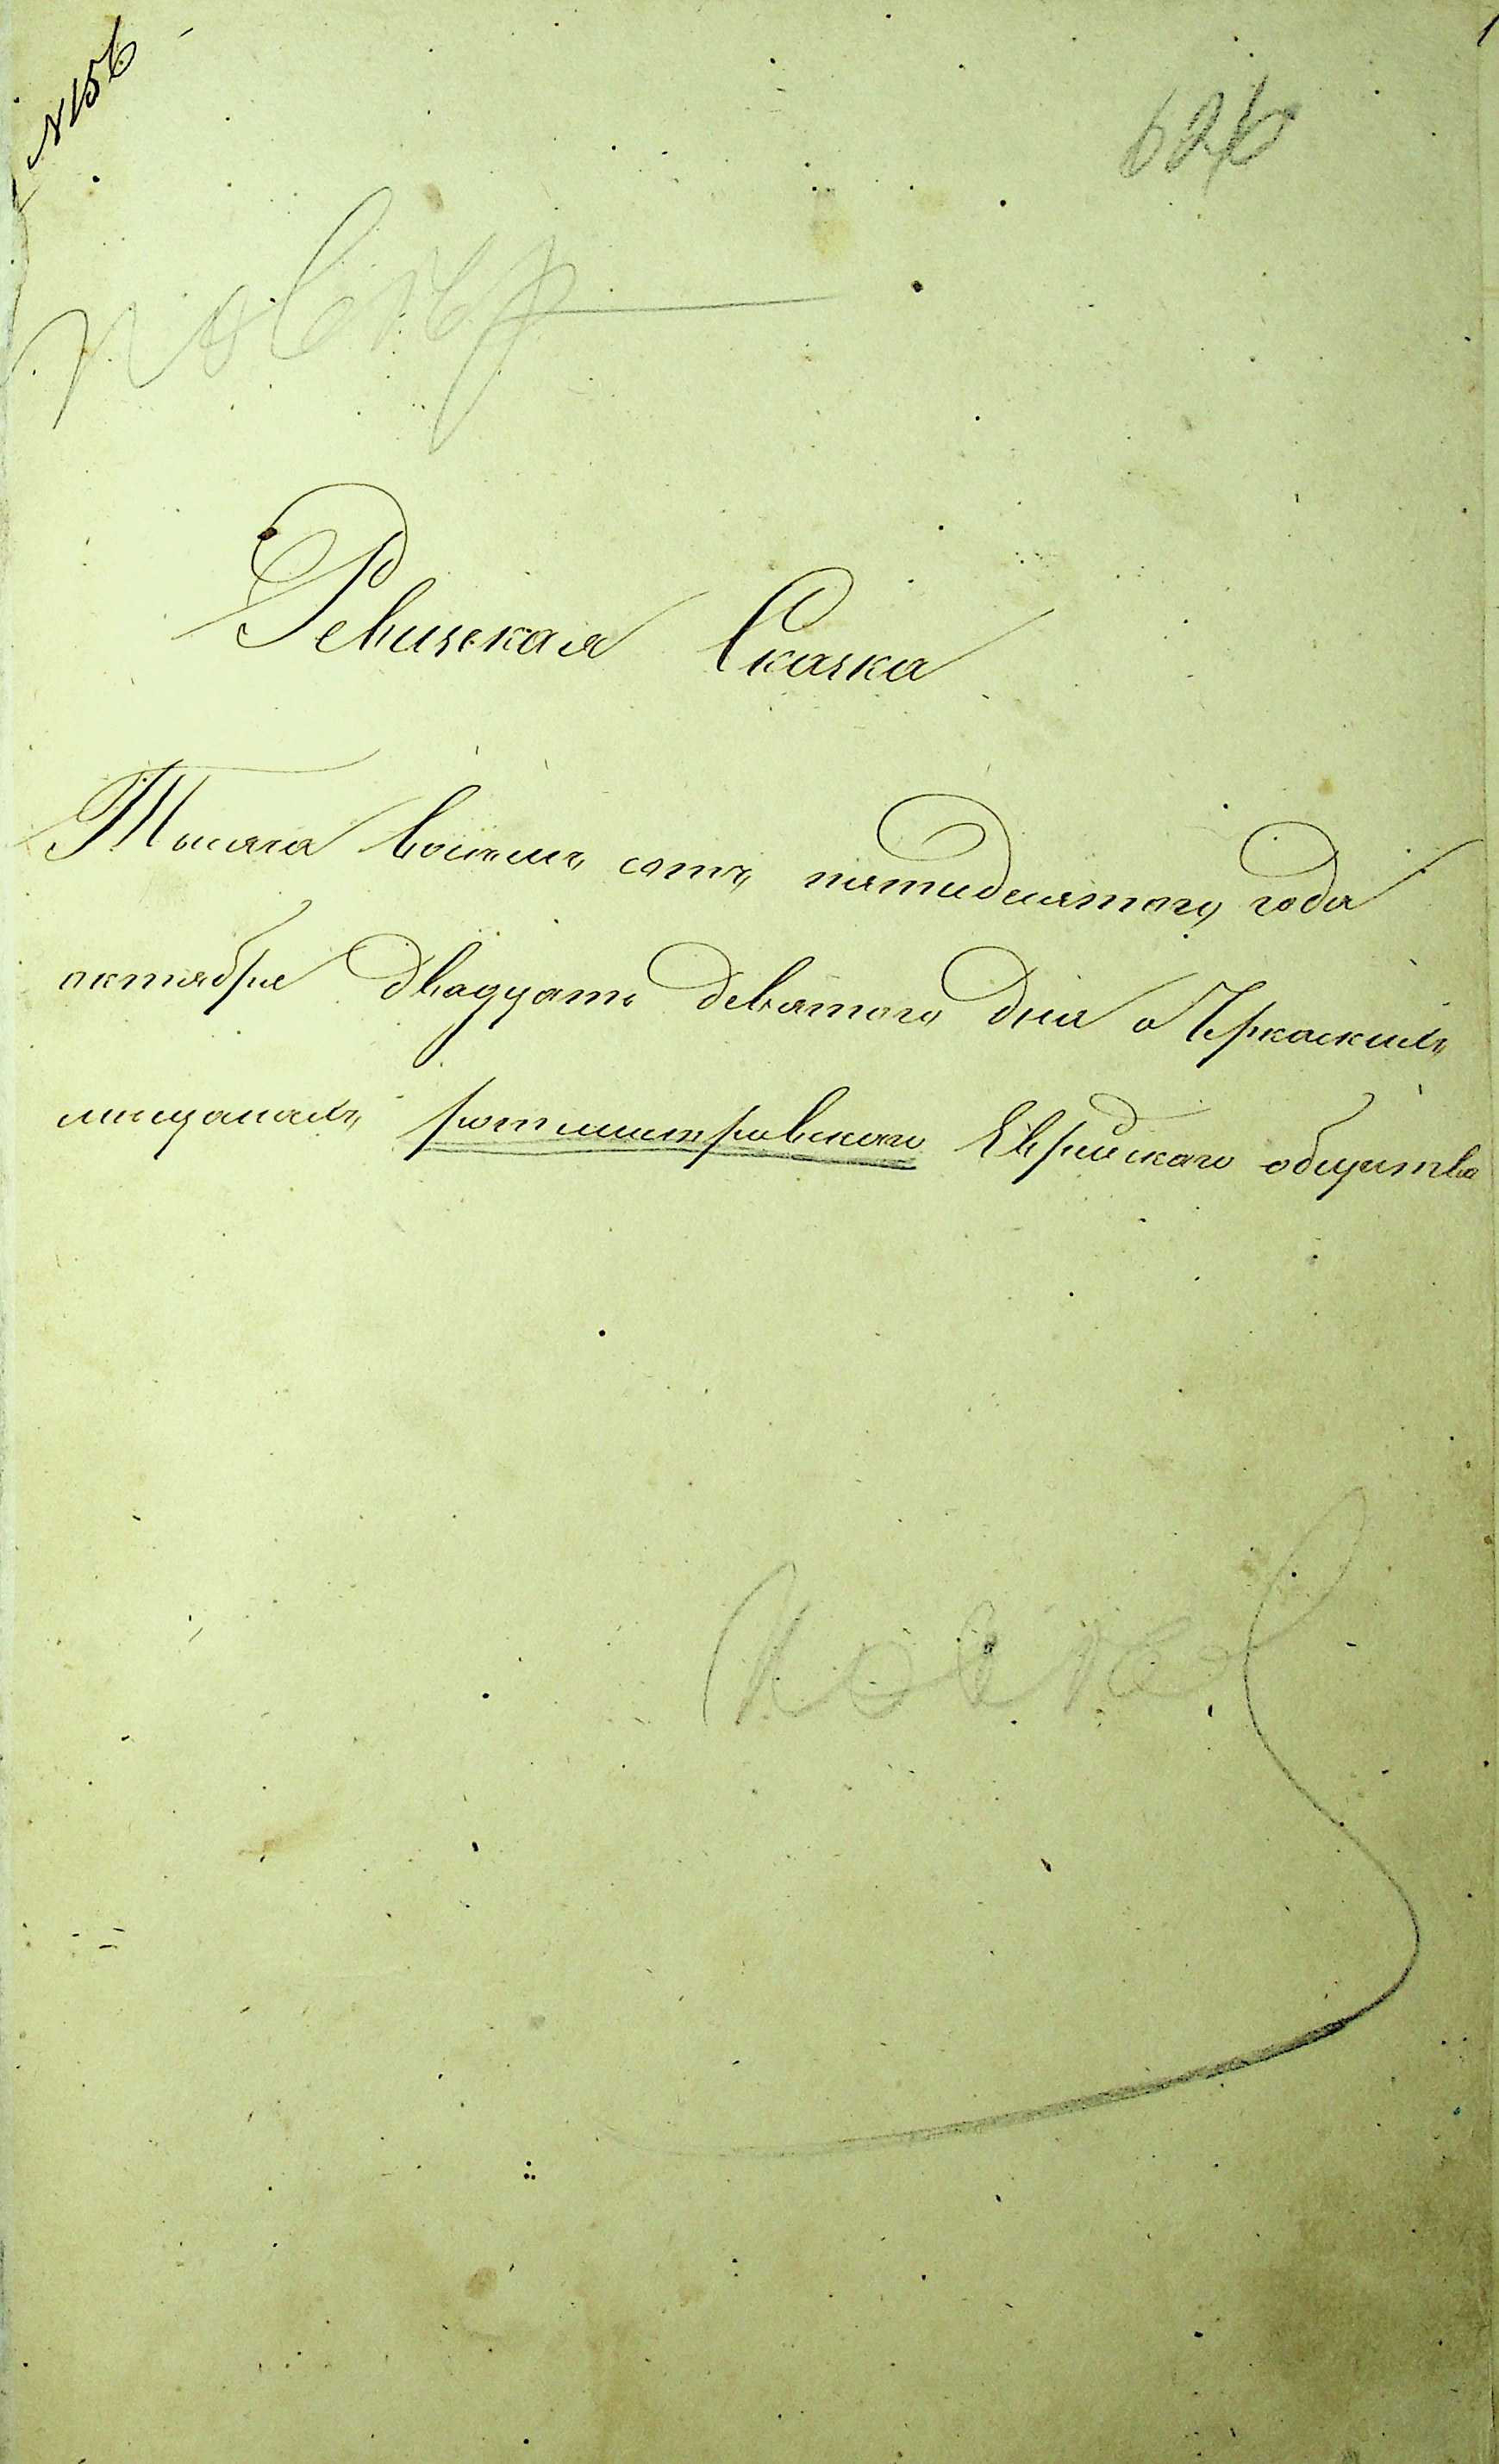 1
№ 156
626
повѣр
Ревизская Сказка
Тысяча восемь сотъ пятидесятого года
октября двадцать девятого дня о Черкаскихъ
мещанахъ ротмистровского Еврейского общества